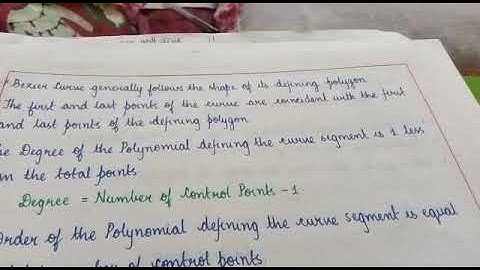 • Bezier Curve generally follows the shape of its defining polygon
The first and last points of the curve are coincident with the first
and last points of the defining polygon
Degree of the Polynomial defining the curve segment is 1 less
the total points
Degree = Number of Control Points - 1
Order of the Polynomial defining the curve segment is equal
of control points